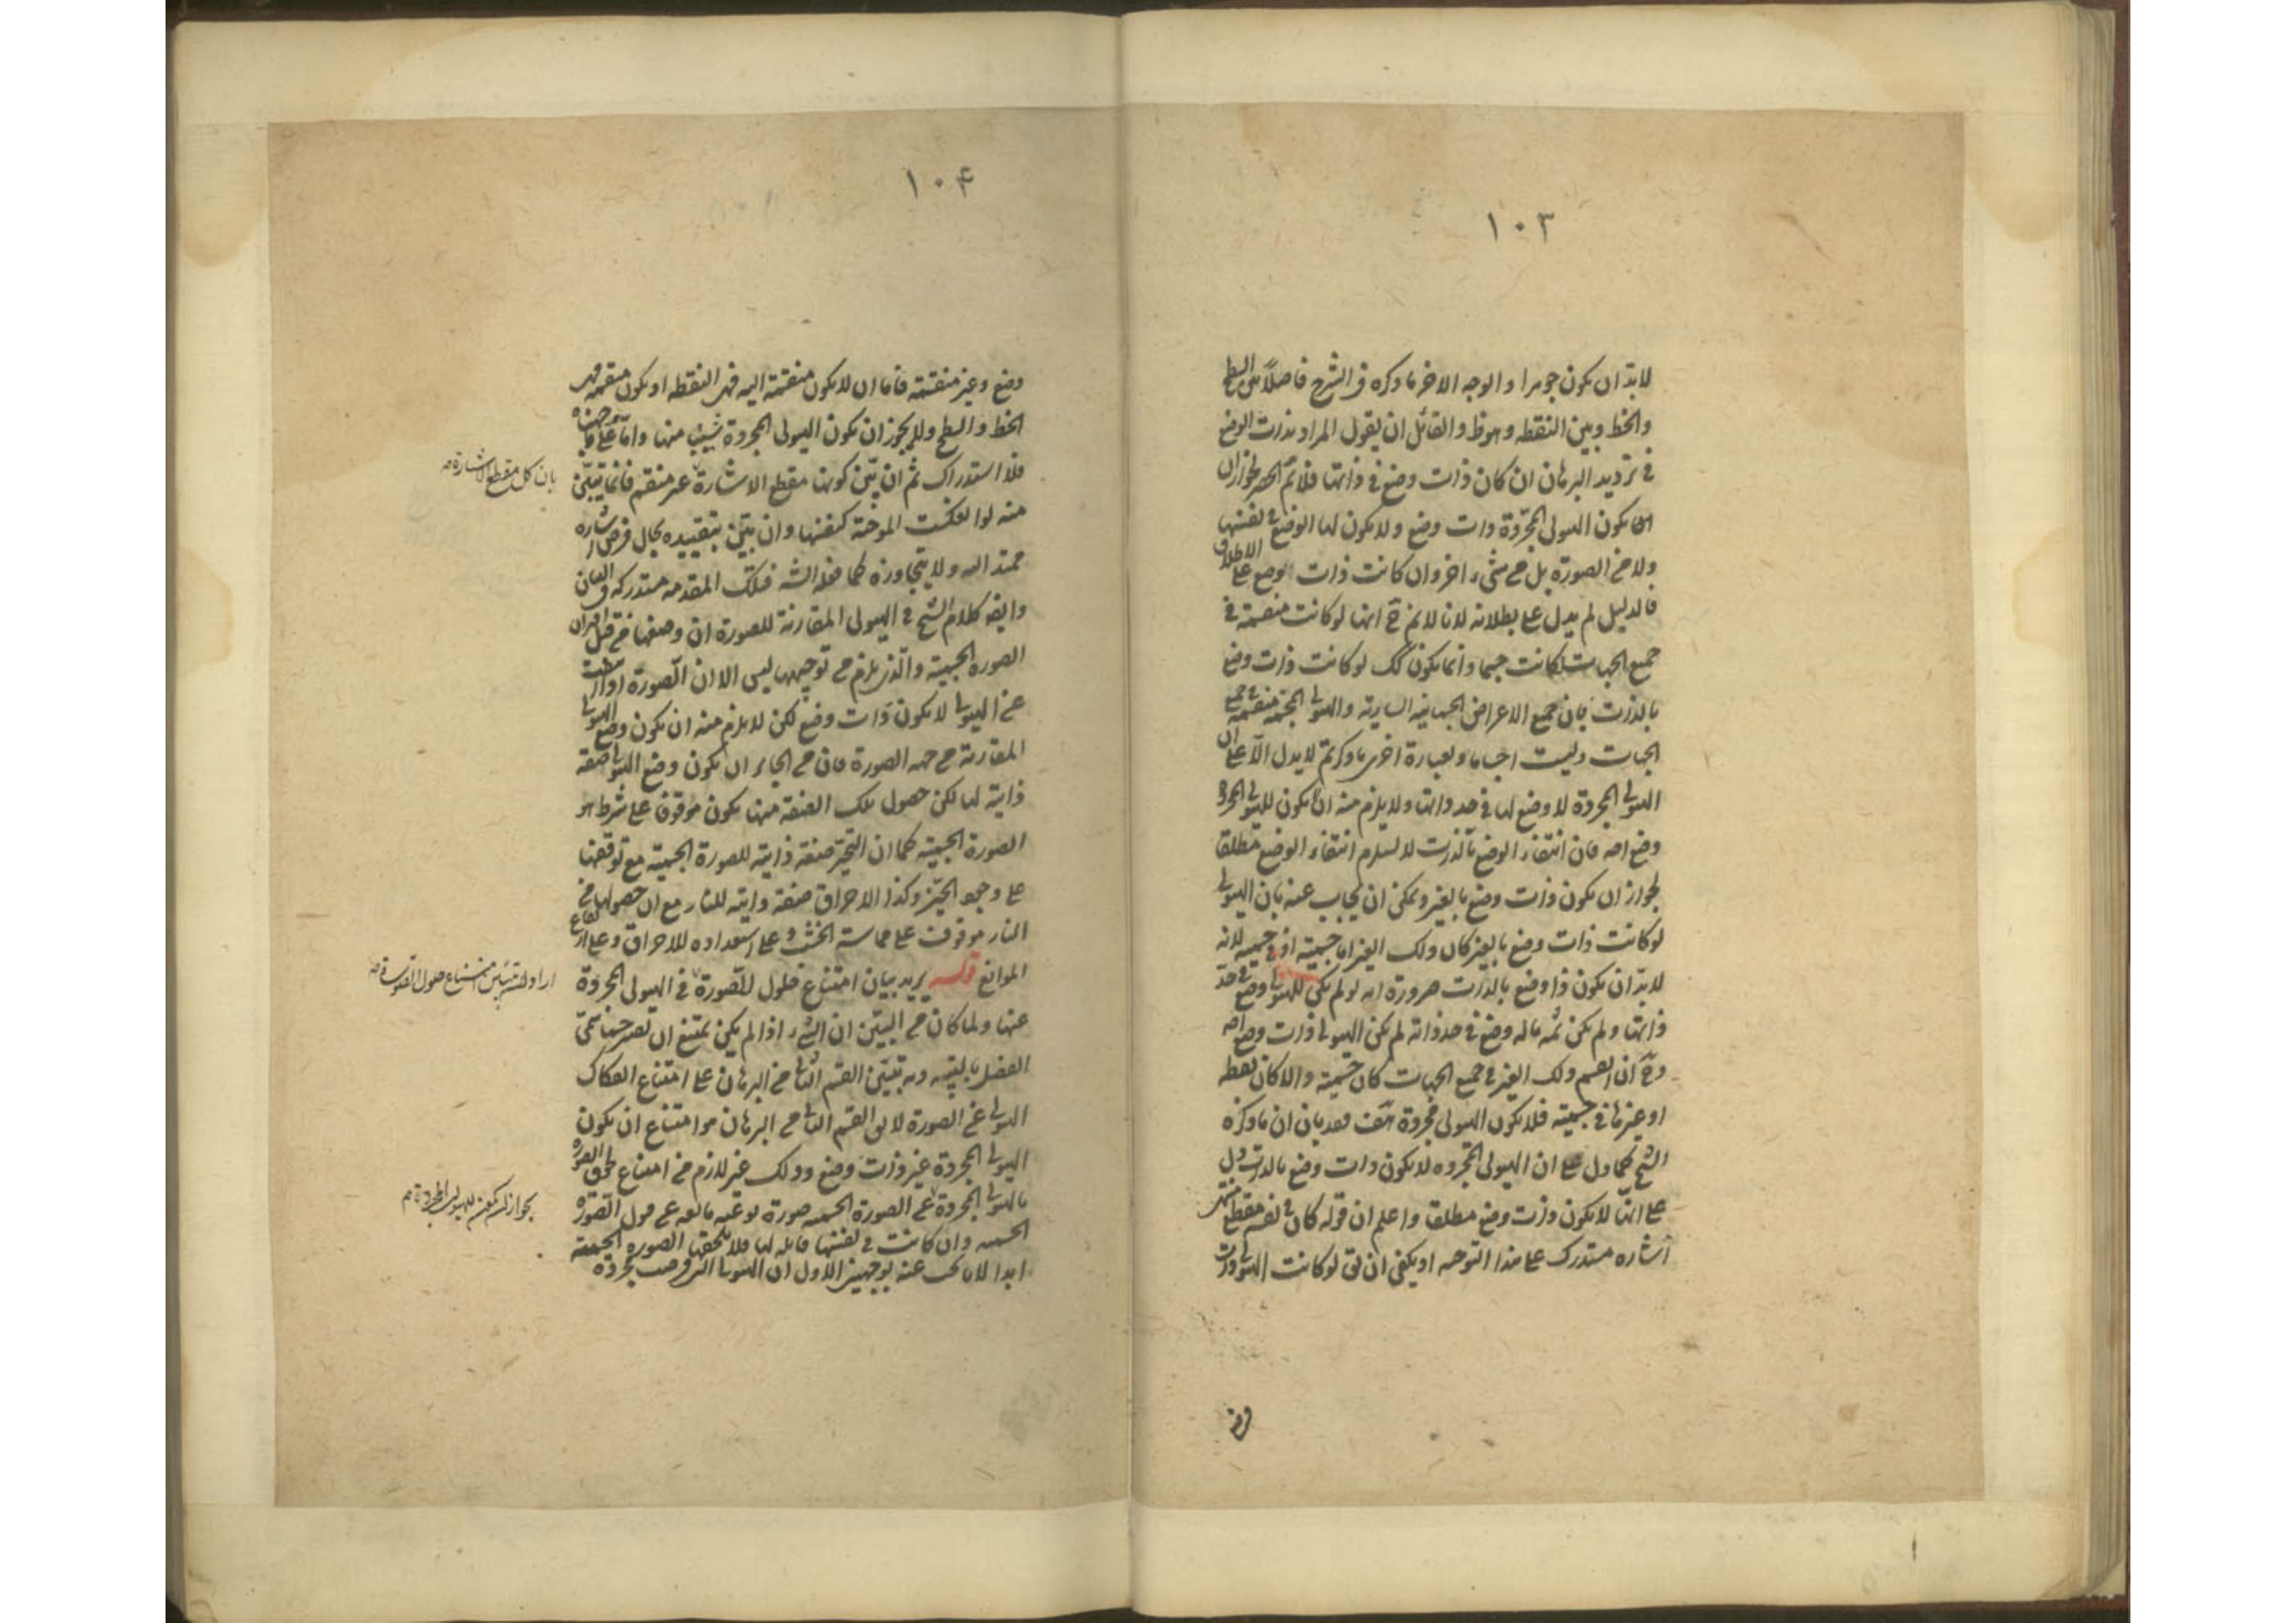 ١٠٣
لابد ان يكون جوهرا والوجه الاخر ما ذكره فى الشرح فاصلاً بين السطح
والخط وبين النقطه وهو ظ والقائل ان يقول المراد بذات الوضع
فى ترديد البرهان ان كان ذات وضع فى ذاتها فلا تم الحصر لجواز ان
يكون الهيولى المجردة ذات وضع ولا يكون لها الوضع فى نفسها
ولا من الصورة بل من شىء اخر وان كانت ذات وضع على الاطلاق
فالدليل لم يدل على بطلانه لانا لانم ح انها لو كانت منقسمة فى
جميع الجهات لكانت جسما وانما يكون كك لو كانت ذات وضع
بالذات فان جميع الاعراض الجسمانيه الساريه والهيولى المجتمعة منقسمة فى
الجهات وليست اجساما وبعبارة اخرى ما ذكرتم لا يدل الا على ان
الهيولى المجردة لا وضع لها فى حد ذاتها ولا يلزم منه ان لا يكون للهيولى المجردة
وضع اصه فان انتفاء الوضع بالذات لا يستلزم انتفاء الوضع مطلقا
لجواز ان يكون ذات وضع بالغير ويمكن ان يجاب عنه بان الهيولى
لو كانت ذات وضع بالغير كان ذلك الغير اما جسمية او فى جسمية لانه
لابد ان يكون ذا وضع بالذات ضرورة انه لو لم يكن للهيولى وضع فى حد
ذاتها ولم يكن ثمه ماله وضع فى حد ذاته لم يكن الهيولى ذات وضع اصه
وح ان انقسم ذلك الغير فى جميع الجهات كان جسمية والا كان نقطه
او غيرها فى جسمية فلا يكون الهيولى مجردة هف فقد بان ان ما ذكره
الشيخ كما دل على ان الهيولى المجرده لا يكون ذات وضع بالذات دل
على انها لا يكون ذات وضع مطلقا واعلم ان قوله كان فى نفسه مقطع منتهى
اشاره مستدرك على هذا التوجيه اذ يكفى ان يق لو كانت الهيولى ذات
وضع
١٠۴
وضع وغير منقسمة فاما ان لا يكون منقسمة اليه فهى النقطه او يكون منقسمة فهى
الخط والسطح ولا يجوز ان يكون الهيولى المجردة شيئا منها واما على ما
فلا استدراك ثم ان بيّن كونها مقطع الاشارة غير منقسم فانما يتبيّن
بان كل مقطع الاشارة صه
منه لو انعكست الموجبة كنفسها وان بيّن بتقييده بحال فرض اشاره
ممتد اليه ولا يتجاوزه كما فعله الشه فتلك المقدمه مستدركه فى البيان
وايضه كلام الشيخ فى الهيولى المقارنة للصورة ان وضعها من قبل اقتران
الصورة الجسمية والذى يلزم من توجيهه ليس الا ان الصورة اذا
عن الهيولى لا يكون ذات وضع لكن لا يلزم منه ان يكون وضع الهيولى
المقارنة من جهه الصورة فان من الجائز ان يكون وضع الهيولى صفة
ذاتية لها لكن حصول تلك الصفة منها يكون موقوفا على شرط هو
الصورة الجسمية كما ان التحيز صفة ذاتية للصورة الجسمية مع توقفها
على وجود الحيّز وكذا الاحراق صفة ذاتيه للنار مع ان حصولها من
النار موقوف على مماسة الخشب وعلى استعداده للاحراق وعلى ارتفاع
الموانع قوله يريد بيان امتناع حلول الصورة فى الهيولى المجردة
عنها ولما كان من البيّن ان الشىء اذا لم يكن يمتنع ان
الفصل بالبقيه وبه يتبيّن القسم الثانى من البرهان على امتناع انفكاك
الهيولى عن الصورة لا يق القسم الثانى من البرهان هو امتناع ان يكون
الهيولى المجردة غير ذات وضع وذلك غير لازم من امتناع لحوق الصورة
بالهيولى المجردة عن الصورة الجسميه صورة نوعيه مانعه عن قبول الصورة
الجسميه وان كانت فى نفسها قابله لها فلا يلحقها الصورة الجسمية
ابدا لانا نجيب عنه بوجهين الاول ان الهيولى التى فرضت مجردة